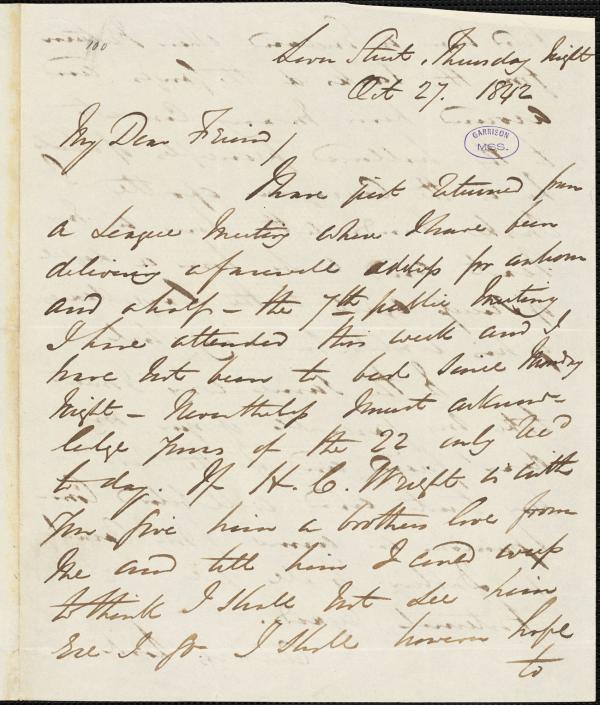 100
Street, Thursday Night
Oct 27. 1842
GARRISON
MSS.
My Dear Friend,
I have just returned from
a League Meeting where I have been
delivering a farewell address for an hour
and a half – the 7th public Meeting
I have attended this week and I
have not been to bed since Monday
Night – Nevertheless I must acknow-
ledge yours of the 22 only Recd
to day. If H. C. Wright is with
you give him a brothers love from
me and tell him I could weep
to think I shall not see him
Ere I go. I shall however hope
to